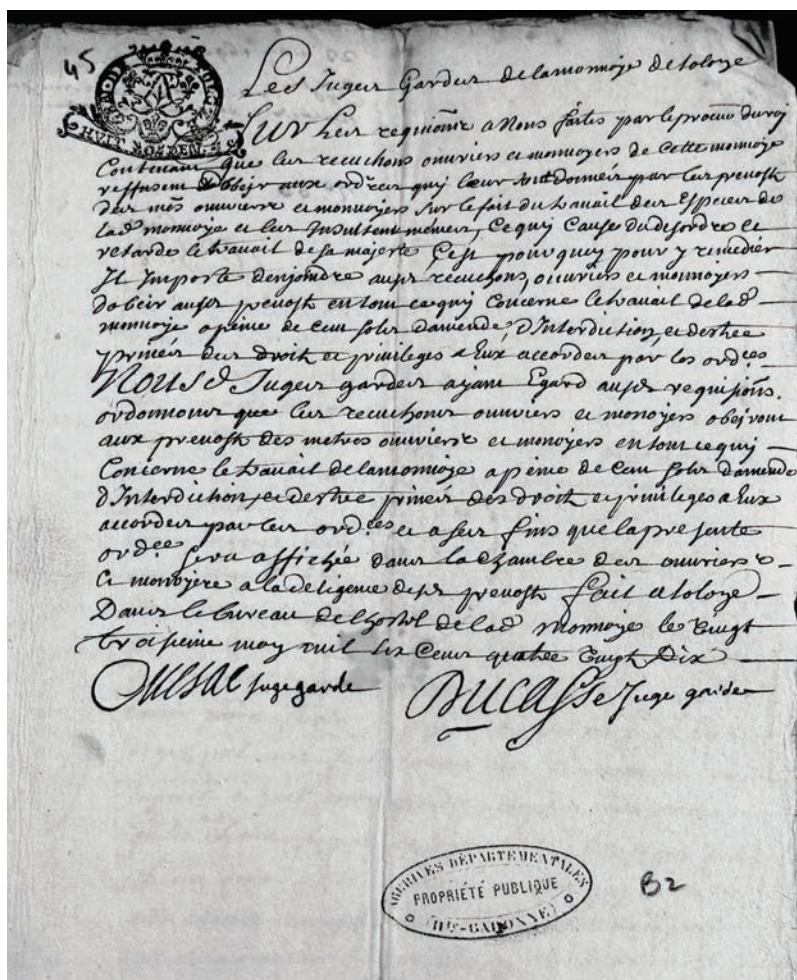 45
GEN. DE TOLOZE
HVIT DEN.
Les Juges Gardes de la monnoye de toloze
Sur Les requisitions a Nous faites par le procureur du roy
Contenant que les recuchons ouvriers et monnoyers de Cette monnoye
reffusent d'obeir aux ordres quy Leur sont donnés par les prevosts
des mes ouvriers et monnoyers sur le fait du travail des Especes de
lad monnoye et les Insultent mémes, Ce quy Cause du desordre et
retarde le travail de sa majeste C'est pourquoy pour y remedier
Il Importe denjoindre ausds recuchons, ouvriers et monnoyers
dobeir ausds prevosts en tout ce quy Concerne le travail de lad
monnoye a peine de Cent sols damende, d'Interdiction, et destre
privés des droits et privileges a Eux accordes par les ordces
Nousd Juges gardes ayant Egard ausds requisions
ordonnons que les recuchons ouvriers et monoyers obeiront
aux prevosts des metres ouvriers et monoyers en tout ce quy
Concerne le travail de la monnoye a peine de Cent sols damende
d'Interdiction, et destre privés des droits et privileges a Eux
accordes par les ordces et a ses fins que la presente
ordce sera affichée dans la chambre des ouvriers
et monoyers a la deligence desds prevosts fait a toloze
Dans le bureau de lhostel de lad monnoye le Vingt
troisieme may mil six Cens quatre Vingt Dix
juge garde
DUCASSE Juge garde
ARCHIVES DÉPARTEMENTALES
PROPRIÉTÉ PUBLIQUE
(HTE-GARONNE)
B2